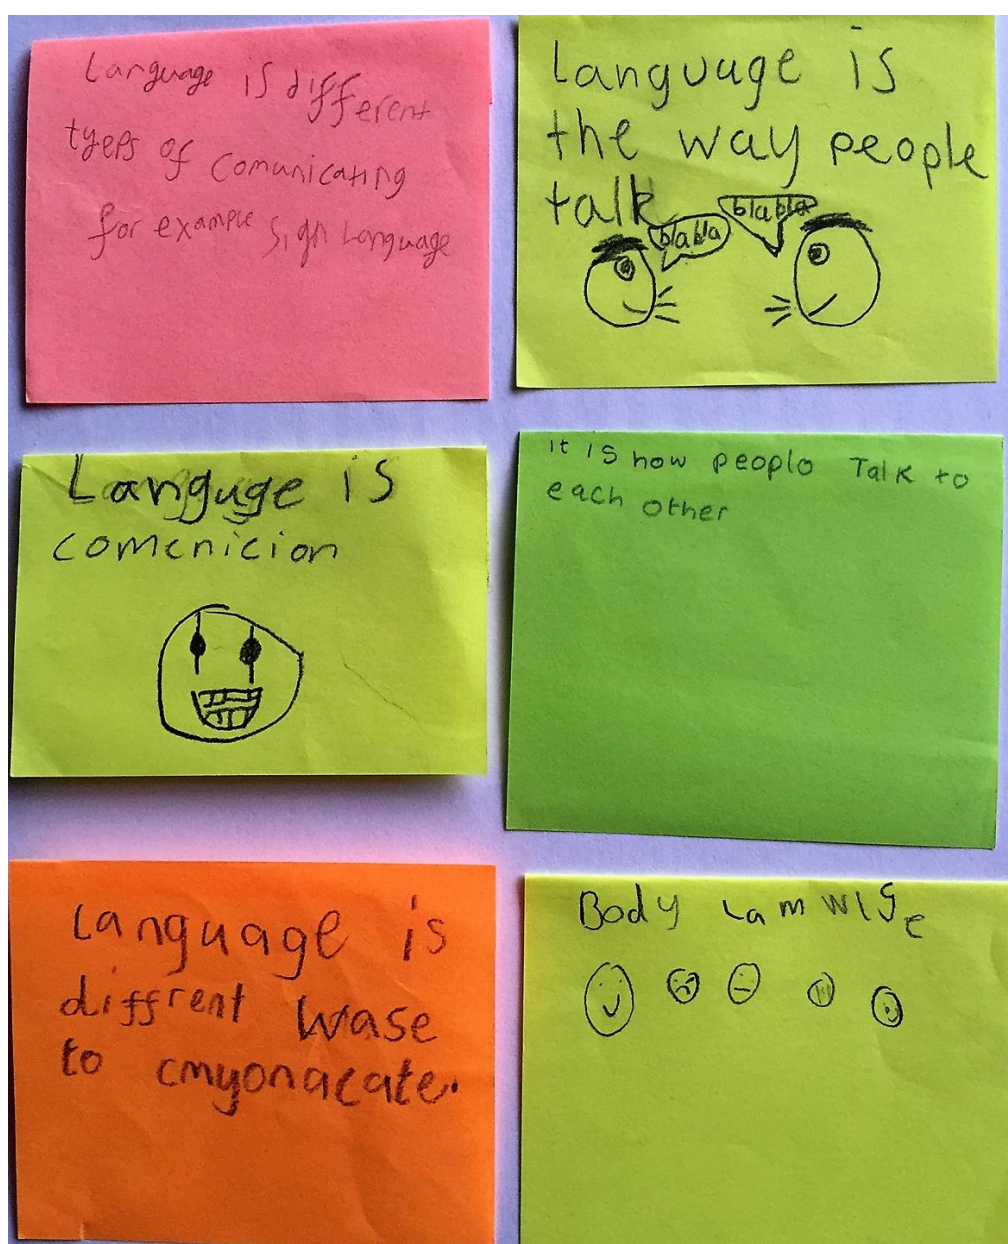 Language is different
tyeps of comunicating
for example sign Language
Language is
the way people
talk
blabla
blabla
Languge is
comenicion
it is how peoplo Talk to
each other
Language is
diffrent wase
to cmyonacate.
Body Lamwige